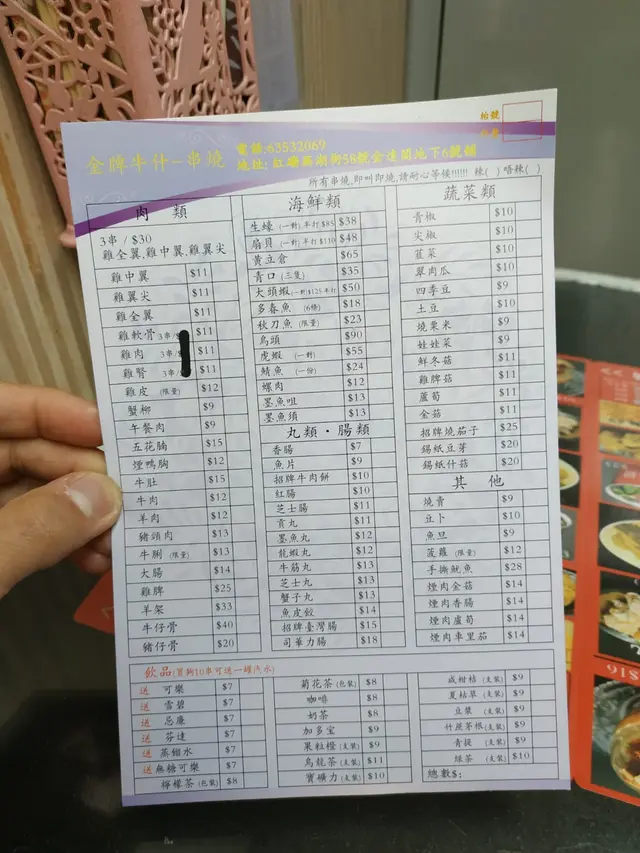 金牌牛什-串燒
電話:63532069
地址:紅磡蕪湖街58號金達閣地下6號舖
枱號
所有串燒,即叫即燒,請耐心等候!!!!!! 辣( ) 唔辣( )
肉類
3串 / $30
雞全翼,雞中翼,雞翼尖
雞中翼 $11
雞翼尖 $11
雞全翼 $11
雞軟骨 3串/ $11
雞肉 3串/ $11
雞腎 3串 $11
雞皮 (限量) $12
蟹柳 $9
午餐肉 $9
五花腩 $15
煙鴨胸 $12
牛肚 $15
牛肉 $12
羊肉 $12
豬頸肉 $13
牛脷 (限量) $13
大腸 $14
雞髀 $25
羊架 $33
牛仔骨 $40
豬仔骨 $20
海鮮類
生蠔 (一對) 半打$95 $38
扇貝 (一對) 半打$110 $48
黃豆倉 $65
青口 (三隻) $35
大頭蝦 (一對$125半打) $50
多春魚 (6條) $18
秋刀魚 (限量) $23
烏頭 $90
虎蝦 (一對) $55
鯖魚 (一份) $24
螺肉 $12
墨魚咀 $13
墨魚須 $13
丸類·腸類
香腸 $7
魚片 $9
招牌牛肉餅 $10
紅腸 $10
芝士腸 $11
貢丸 $11
墨魚丸 $12
龍蝦丸 $12
牛筋丸 $13
芝士丸 $13
蟹子丸 $13
魚皮餃 $14
招牌臺灣腸 $15
司華力腸 $18
蔬菜類
青椒 $10
尖椒 $10
韮菜 $10
翠肉瓜 $10
四季豆 $9
土豆 $10
燒粟米 $9
娃娃菜 $9
鮮冬菇 $11
雞髀菇 $11
蘆筍 $11
金菇 $11
招牌燒茄子 $25
錫紙豆芽 $20
錫紙什菇 $20
其他
燒賣 $9
豆卜 $10
魚旦 $9
菠蘿 (限量) $12
手撕魷魚 $28
煙肉金菇 $14
煙肉香腸 $14
煙肉蘆筍 $14
煙肉車里茄 $14
飲品(買夠10串可送一罐汽水)
送 可樂 $7
送 雪碧 $7
送 忌廉 $7
送 芬達 $7
送 蒸餾水 $7
送 無糖可樂 $7
檸檬茶 (包裝) $8
菊花茶 (包裝) $8
咖啡 $8
奶茶 $8
加多宝 $9
果粒橙 (支裝) $9
烏龍茶 (支裝) $11
寶礦力 (支裝) $10
咸柑桔 (支裝) $9
夏枯草 (支裝) $9
豆漿 (支裝) $9
竹蔗茅根(支裝) $9
青提 (支裝) $9
綠茶 (支裝) $10
總數$:
$16